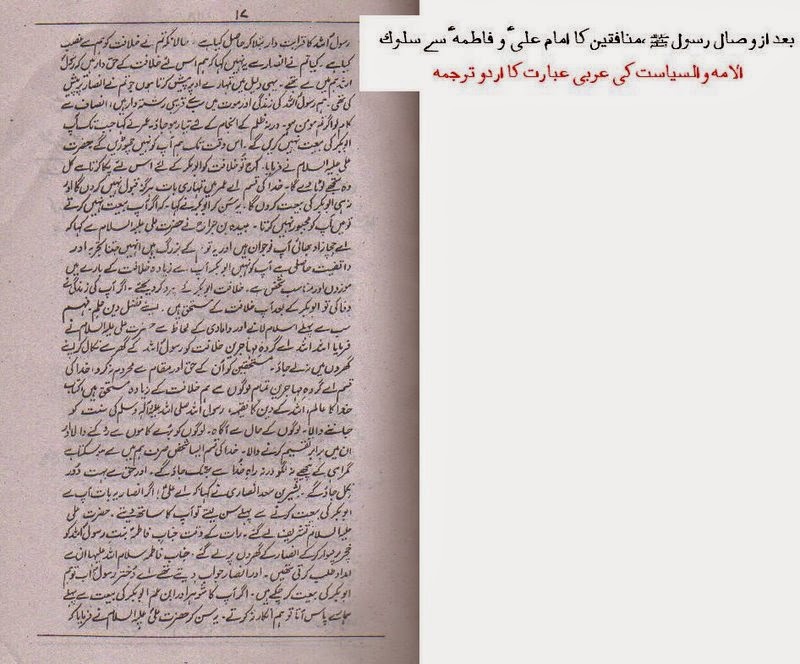 بعد از وصال رسول ﷺ ،منافقین کا امام علیؑ و فاطمہؑ سے سلوک
الامہ والسیاست کی عربی عبارت کا اردو ترجمہ
۱۷
رسول اللہ کا قرابت دار بتلا کر حاصل کیا ہے۔ حالانکہ تم نے خلافت کو ہم سے غصب
کیا ہے۔ کیا تم نے انصار سے یہ نہیں کہا کہ ہم اس لئے خلافت کے حق دار ہیں کہ رسول
اللہ ہم میں سے تھے۔ یہی دلیل میں تمہارے اوپر پیش کرتا ہوں جو تم نے انصار پر پیش
کی تھی۔ ہم رسول اللہ کی زندگی اور موت میں سب سے قریبی رشتہ دار ہیں، انصاف سے
کام لو اگر تم مومن ہو۔ ورنہ ظلم کے انجام کے لئے تیار ہو جاؤ۔ عمر نے کہا جب تک آپ
ابوبکر کی بیعت نہیں کریں گے۔ اس وقت تک ہم آپ کو نہیں چھوڑیں گے۔ حضرت
علی علیہ السلام نے فرمایا۔ آج تو خلافت کو ابوبکر کے لئے اس لئے پکا کرتا ہے کل
وہ تجھے لوٹا دے گا۔ خدا کی قسم اے عمر میں تمہاری بات ہرگز قبول نہیں کروں گا اور
نہ ہی ابوبکر کی بیعت کروں گا۔ یہ سن کر ابوبکر نے کہا۔ کہ اگر آپ بیعت نہیں کرتے
تو میں آپ کو مجبور نہیں کرتا۔ عبیدہ بن جراح نے حضرت علی علیہ السلام سے کہا کہ
اے چچا زاد بھائی آپ نوجوان ہیں اور یہ قوم کے بزرگ ہیں انہیں جتنا تجربہ اور
واقفیت حاصل ہے آپ کو نہیں ابوبکر آپ سے زیادہ خلافت کے بارے میں
موزوں اور مناسب شخص ہے۔ خلافت ابوبکر کے سپرد کر دیجئے۔ اگر آپ کی زندگی نے
وفا کی تو ابوبکر کے بعد آپ خلافت کے مستحق ہیں۔ اپنے فضل دین علم۔ فہم
سب سے پہلے اسلام لانے اور دامادی کے لحاظ سے حضرت علی علیہ السلام نے
فرمایا اللہ اللہ اے گروہ مہاجرین خلافت کو رسول اللہ کے گھر سے نکال کر اپنے
گھروں میں نہ لے جاؤ۔ مستحقین کو ان کے حق اور مقام سے محروم نہ کرو، خدا کی
قسم اے گروہ مہاجرین تمام لوگوں سے ہم خلافت کے زیادہ مستحق ہیں، کتاب
خدا کا عالم، اللہ کے دین کا فقیہہ، رسول اللہ صلی اللہ علیہ وآلہ وسلم کی سنت کو
جاننے والا۔ لوگوں کے حال سے آگاہ۔ لوگوں کو بُرے کاموں سے روکنے والا اور
ان میں برابر تقسیم کرنے والا۔ خدا کی قسم ایسا شخص صرف ہم میں سے ہو سکتا ہے
گمراہی کے پیچھے نہ لگو ورنہ راہ خدا سے بھٹک جاؤ گے۔ اور حق سے بہت دور
نکل جاؤ گے۔ بشیر بن سعد انصاری نے کہا کہ اے علی! اگر انصار یہ بات آپ سے
ابوبکر کی بیعت کرنے سے پہلے سن لیتے تو آپ کا ساتھ دیتے۔ حضرت علی
علیہ السلام تشریف لے گئے۔ رات کے وقت جناب فاطمہ بنت رسول اللہ کو
خچر پر سوار کر کے انصار کے گھروں پر لے گئے۔ جناب فاطمہ سلام اللہ علیہا ان سے
امداد طلب کرتی تھیں۔ اور انصار جواب دیتے تھے اے دختر رسول اب تو ہم
ابوبکر کی بیعت کر چکے ہیں۔ اگر آپ کا شوہر اور ابن عم ابوبکر کی بیعت سے پہلے
ہمارے پاس آتا تو ہم انکار نہ کرتے۔ یہ سن کر حضرت علی علیہ السلام نے فرمایا کہ